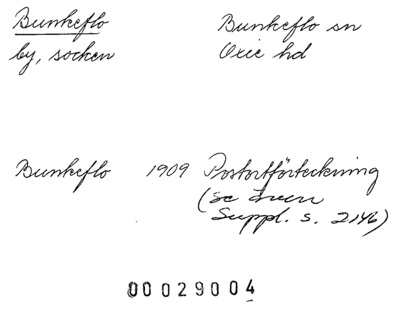 Bunkeflo
by, socken
Bunkeflo sn
Oxie hd
Bunkeflo 1909 Postortförteckning
(se även
Suppl. s. 2146)
00029004